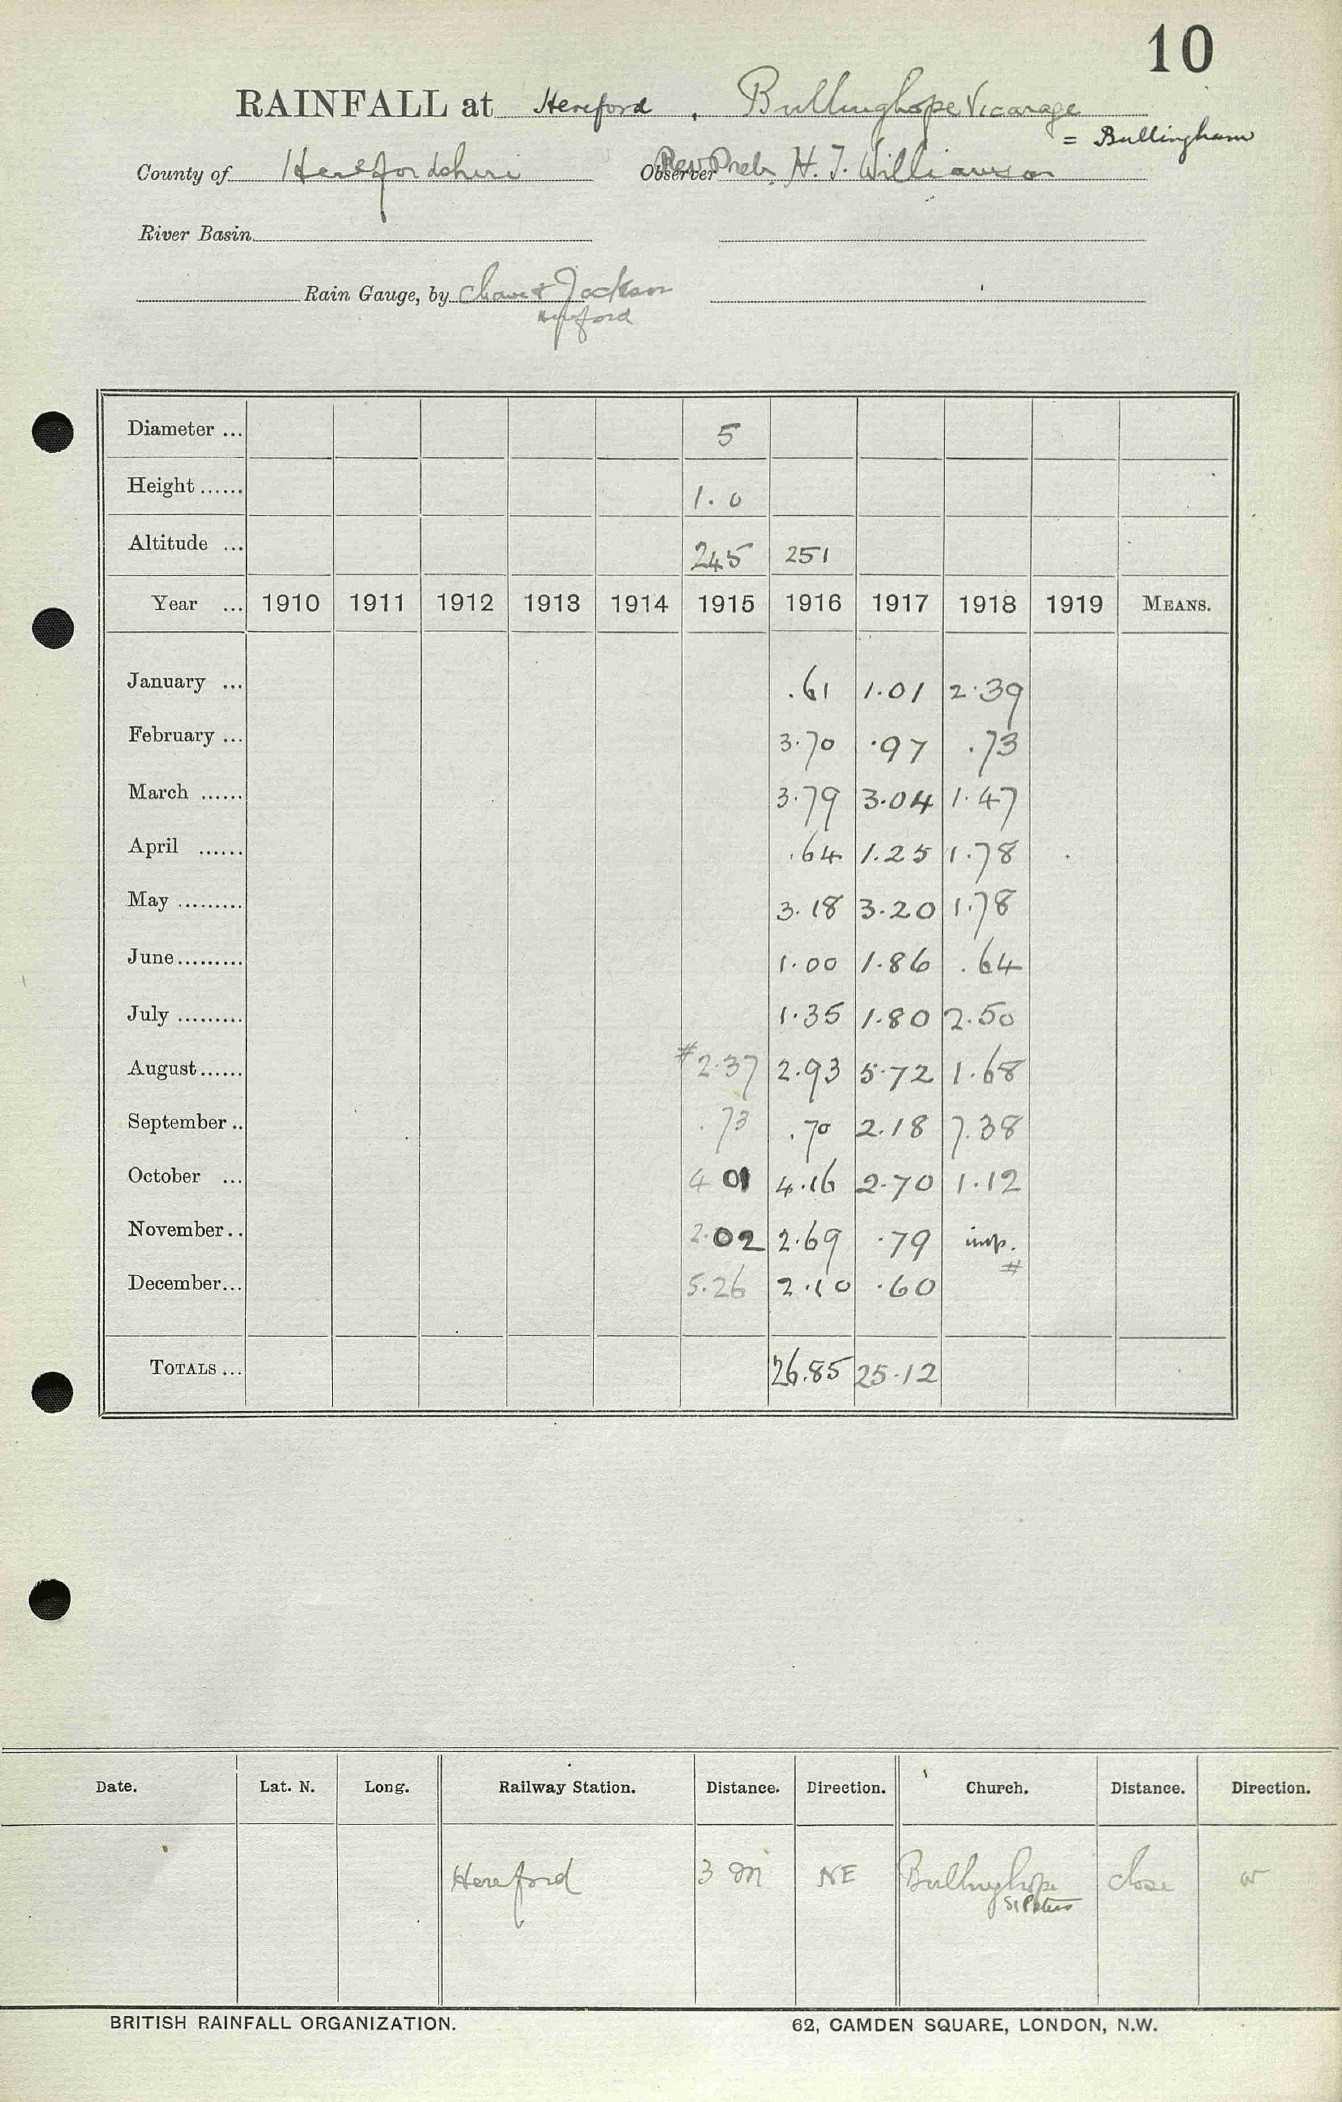 10
RAINFALL at Hereford, Bullinghope Vicarage
= Bullingham
County of Herefordshire Observer Rev Preb. H. J. Williamson
River Basin
Rain Gauge, by Chave & Jackson
Hereford
Diameter ... 5
Height ...... 1.0
Altitude ... 245 251
Year ... 1910 1911 1912 1913 1914 1915 1916 1917 1918 1919 MEANS.
January ... .61 1.01 2.39
February ... 3.70 .97 .73
March ...... 3.79 3.04 1.47
April ...... .64 1.25 1.78
May ......... 3.18 3.20 1.78
June......... 1.00 1.86 .64
July ......... 1.35 1.80 2.50
August...... #2.37 2.93 5.72 1.68
September .. .73 .70 2.18 7.38
October ... 4 01 4.16 2.70 1.12
November.. 2.02 2.69 .79 imp.
#
December... 5.26 2.10 .60
TOTALS ... 26.85 25.12
Date. Lat. N. Long. Railway Station. Distance. Direction. Church. Distance. Direction.
Hereford 3 m NE Bullinghope close W
St Peters
BRITISH RAINFALL ORGANIZATION. 62, CAMDEN SQUARE, LONDON, N.W.